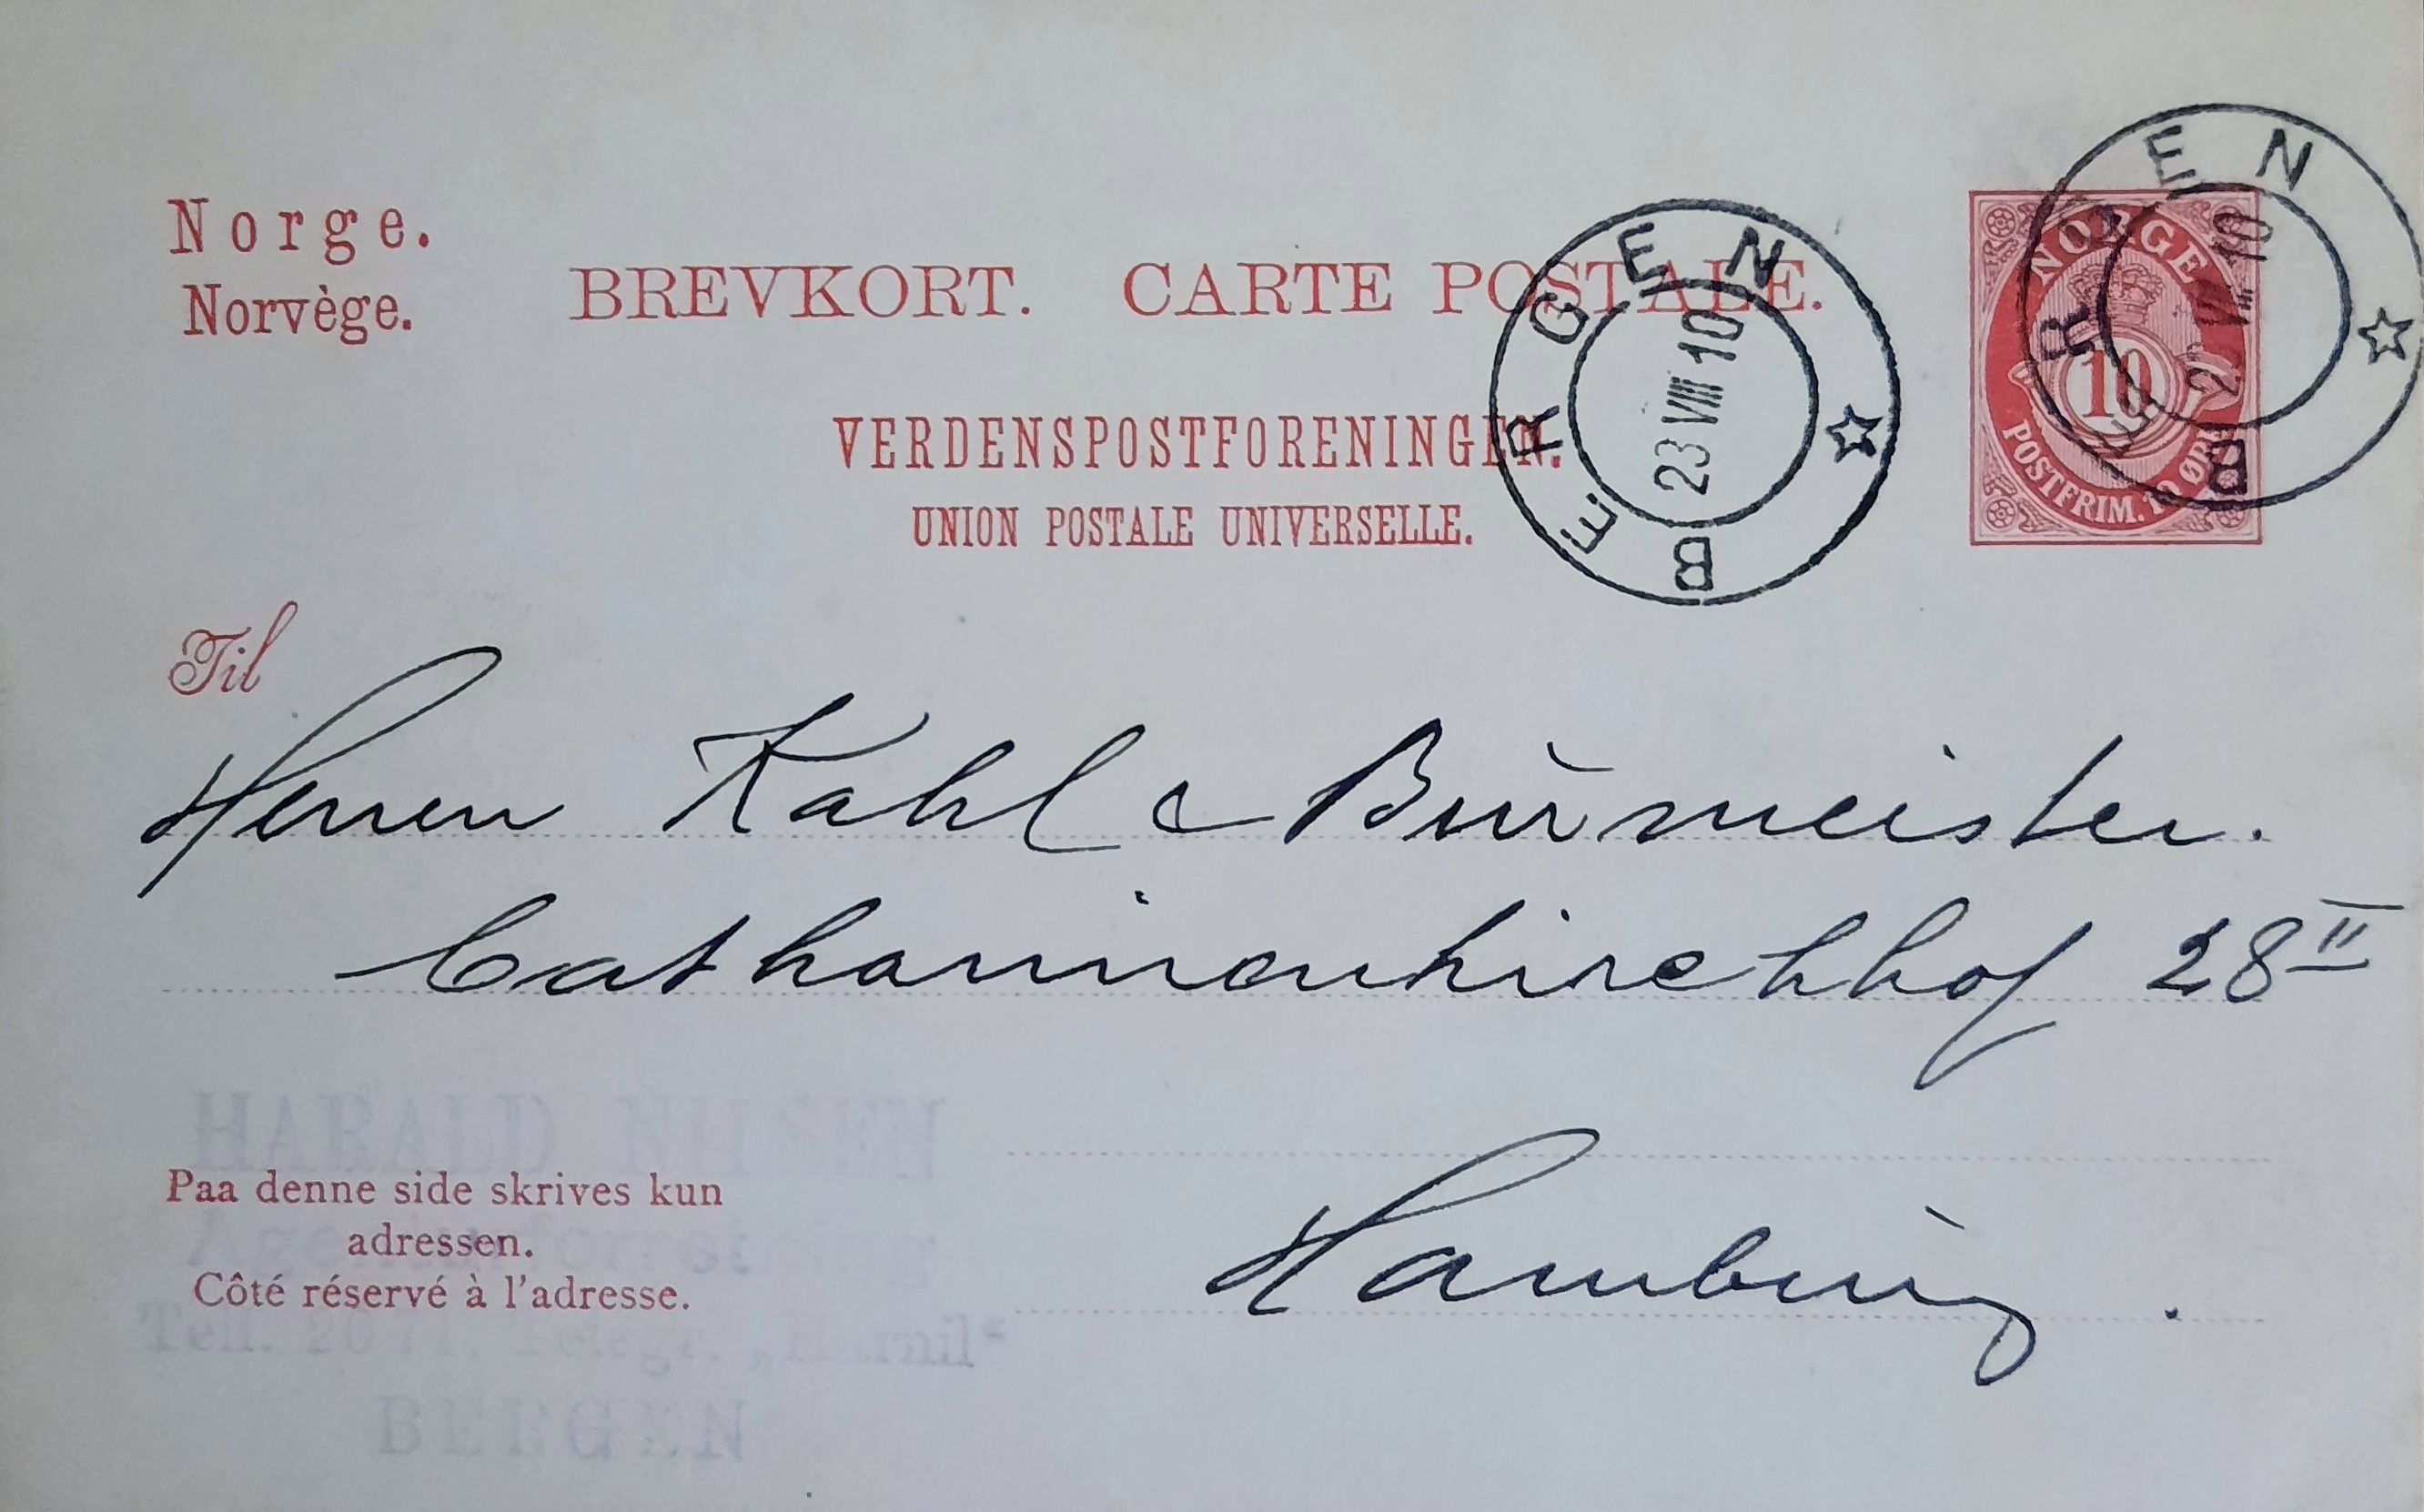 Norge.
Norvège.
BREVKORT. CARTE POSTALE.
VERDENSPOSTFORENINGEN.
UNION POSTALE UNIVERSELLE.
BERGEN
23 VIII 10
NORGE
10
POSTFRIM. 10 ØRE
BERGEN
23 VIII 10
Til
Herren Kahl & Burmeister.
Catharinenkirchhof 28 II
Hamburg.
HARALD NILSEN
Paa denne side skrives kun
adressen.
Agenturforretning
Côté réservé à l'adresse.
Telf. Telegr. „Harnil“
BERGEN